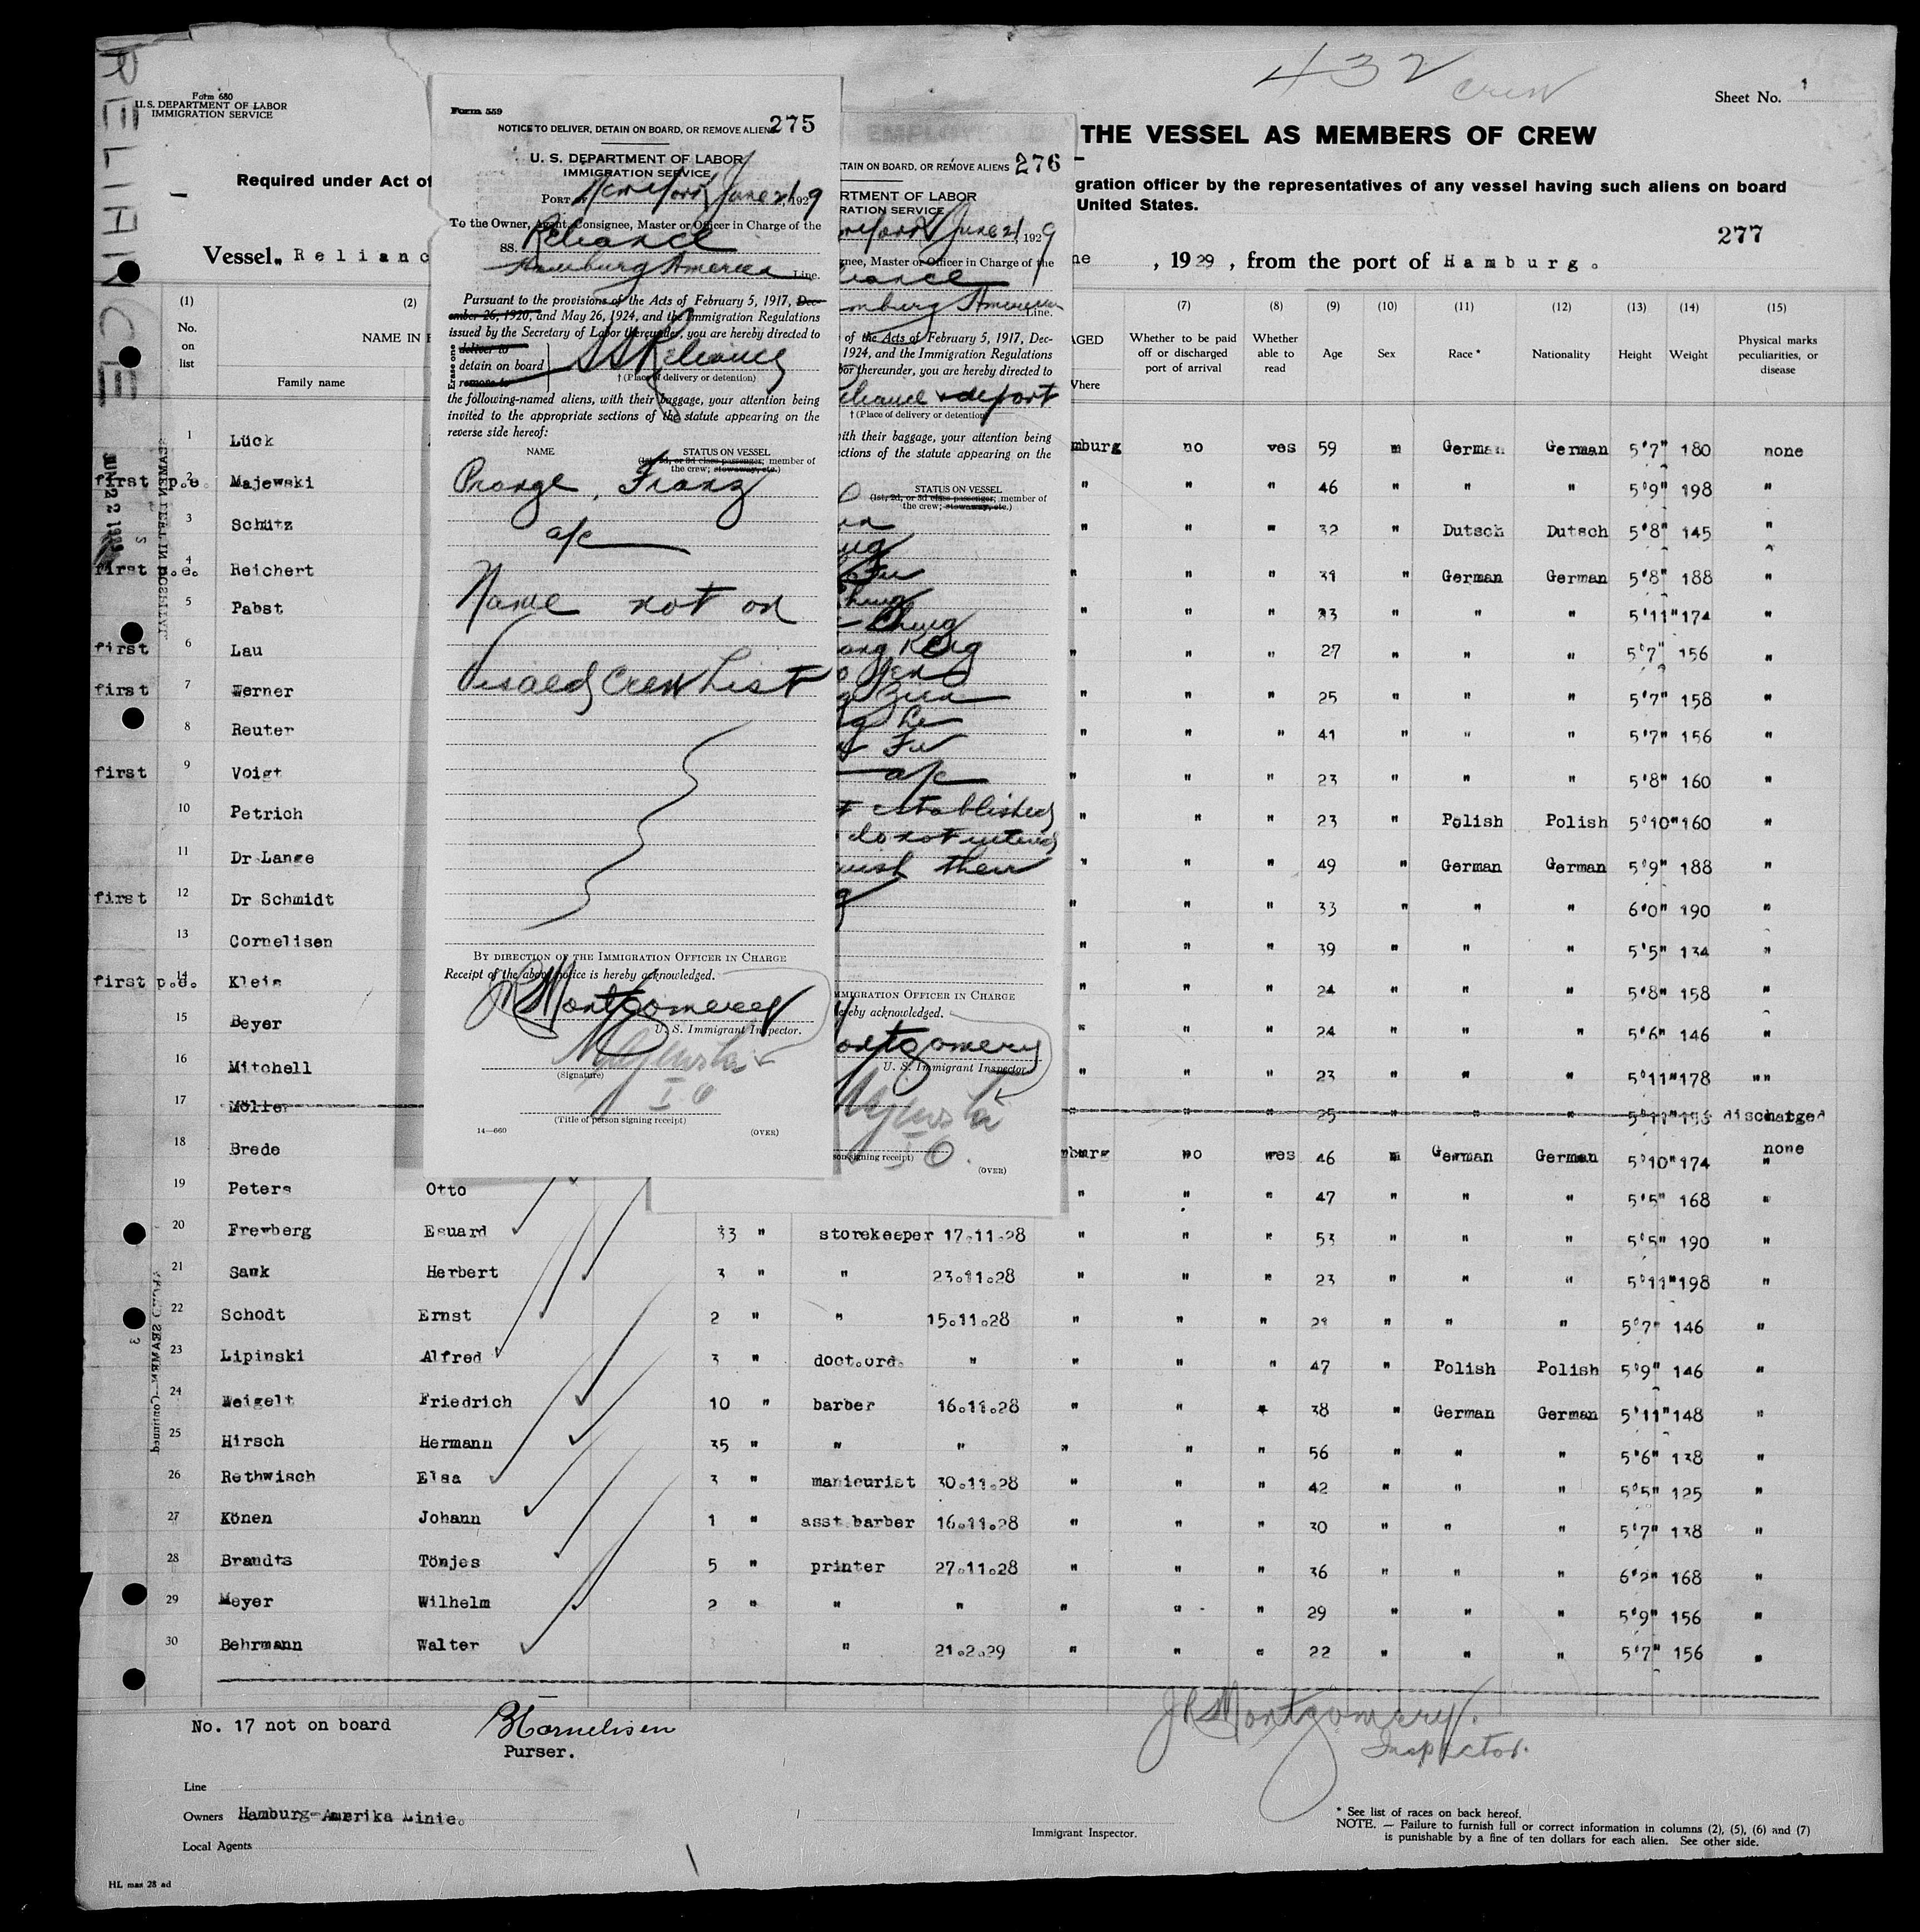 RELIANCE
432
crew
Form 680
U.S. DEPARTMENT OF LABOR
IMMIGRATION SERVICE
Sheet No. 1
THE VESSEL AS MEMBERS OF CREW
Required under Act of
gration officer by the representatives of any vessel having such aliens on board
United States.
277
Vessel. Relianc
ne , 1929 , from the port of Hamburg.
Form 559
NOTICE TO DELIVER, DETAIN ON BOARD, OR REMOVE ALIENS 275
U. S. DEPARTMENT OF LABOR
IMMIGRATION SERVICE
PORT OF New York June 21, 1929
To the Owner, Agent, Consignee, Master or Officer in Charge of the
SS. Reliance
Hamburg America Line.
Pursuant to the provisions of the Acts of February 5, 1917, Dec-
ember 26, 1920, and May 26, 1924, and the Immigration Regulations
issued by the Secretary of Labor thereunder, you are hereby directed to
Erase one
deliver to
detain on board
remove to
SS Reliance
† (Place of delivery or detention)
the following-named aliens, with their baggage, your attention being
invited to the appropriate sections of the statute appearing on the
reverse side hereof:
NAME STATUS ON VESSEL
(1st, 2d, or 3d class passenger; member of
the crew; stowaway, etc.)
Prange, Franz
a/c
Name not on
Visaed Crew List
BY DIRECTION OF THE IMMIGRATION OFFICER IN CHARGE
Receipt of the above notice is hereby acknowledged.
JR Montgomery
U. S. Immigrant Inspector.
(Signature)
I O
(Title of person signing receipt)
14—660 (OVER)
TAIN ON BOARD, OR REMOVE ALIENS 276
RTMENT OF LABOR
RATION SERVICE
June 21, 1929
nee, Master or Officer in Charge of the
liance
mburg American Line.
of the Acts of February 5, 1917, Dec-
1924, and the Immigration Regulations
bor thereunder, you are hereby directed to
eliance & deport
† (Place of delivery or detention)
with their baggage, your attention being
ctions of the statute appearing on the
STATUS ON VESSEL
(1st, 2d, or 3d class passenger; member of
the crew; stowaway, etc.)
Fu
Chung
Chung
ang Keng
Zien
Fu
a/c
t established
do not intend
uish their
MMIGRATION OFFICER IN CHARGE
ereby acknowledged.
ontgomery
U. S. Immigrant Inspector.
I O.
son signing receipt)
(OVER)
(1) (2) (7) (8) (9) (10) (11) (12) (13) (14) (15)
No. on list
NAME IN F
Family name
AGED
Where
Whether to be paid off or discharged port of arrival
Whether able to read
Age Sex Race * Nationality Height Weight
Physical marks peculiarities, or disease
1 Lück mburg no yes 59 m German German 5'7" 180 none
first p.e. 2 Majewski " " " 46 " " " 5'9" 198 "
3 Schütz " " " 32 " Dutsch Dutsch 5'8" 145 "
first p.e. 4 Reichert " " " 31 " German German 5'8" 188 "
5 Pabst " " " 23 " " " 5'11" 174 "
first 6 Lau " " " 27 " " " 5'7" 156 "
first 7 Werner " " " 25 " " " 5'7" 158 "
8 Reuter " " " 41 " " " 5'7" 156 "
first 9 Voigt " " " 23 " " " 5'8" 160 "
10 Petrich " " " 23 " Polish Polish 5'10" 160 "
11 Dr Lange " " " 49 " German German 5'9" 188 "
first 12 Dr Schmidt " " " 33 " " " 6'0" 190 "
13 Cornelisen " " " 39 " " " 5'5" 134 "
first p.e. 14 Klein " " " 24 " " " 5'8" 158 "
15 Beyer " " " 24 " " " 5'6" 146 "
16 Mitchell " " " 23 " " " 5'11" 178 ""
17 Möller " " " 25 " " " 5'11" discharged
18 Brede mburg no yes 46 m German German 5'10" 174 none
19 Peters Otto " " " 47 " " " 5'5" 168 "
20 Freyberg Eduard 33 " storekeeper 17.11.28 " " " 53 " " " 5'5" 190 "
21 Sawk Herbert 3 " " 23.11.28 " " " 23 " " " 5'11" 198 "
22 Schodt Ernst 2 " " 15.11.28 " " " 29 " " " 5'7" 146 "
23 Lipinski Alfred 3 " doct.ord. " " " " 47 " Polish Polish 5'9" 146 "
24 Weigelt Friedrich 10 " barber 16.11.28 " " " 38 " German German 5'11" 148 "
25 Hirsch Hermann 35 " " " " " " 56 " " " 5'6" 138 "
26 Rethwisch Elsa 3 " manicurist 30.11.28 " " " 42 " " " 5'5" 125 "
27 Könen Johann 1 " asst.barber 16.11.28 " " " 30 " " " 5'7" 138 "
28 Brandts Tönjes 5 " printer 27.11.28 " " " 36 " " " 6'2" 168 "
29 Meyer Wilhelm 2 " " " " " " 29 " " " 5'9" 156 "
30 Behrmann Walter " 21.2.29 " " " 22 " " " 5'7" 156 "
No. 17 not on board
BCornelisen
Purser.
JR Montgomery.
Inspector.
Line
Owners Hamburg-Amerika Linie.
Local Agents
Immigrant Inspector.
* See list of races on back hereof.
NOTE. — Failure to furnish full or correct information in columns (2), (5), (6) and (7)
is punishable by a fine of ten dollars for each alien. See other side.
HL mas 28 ad